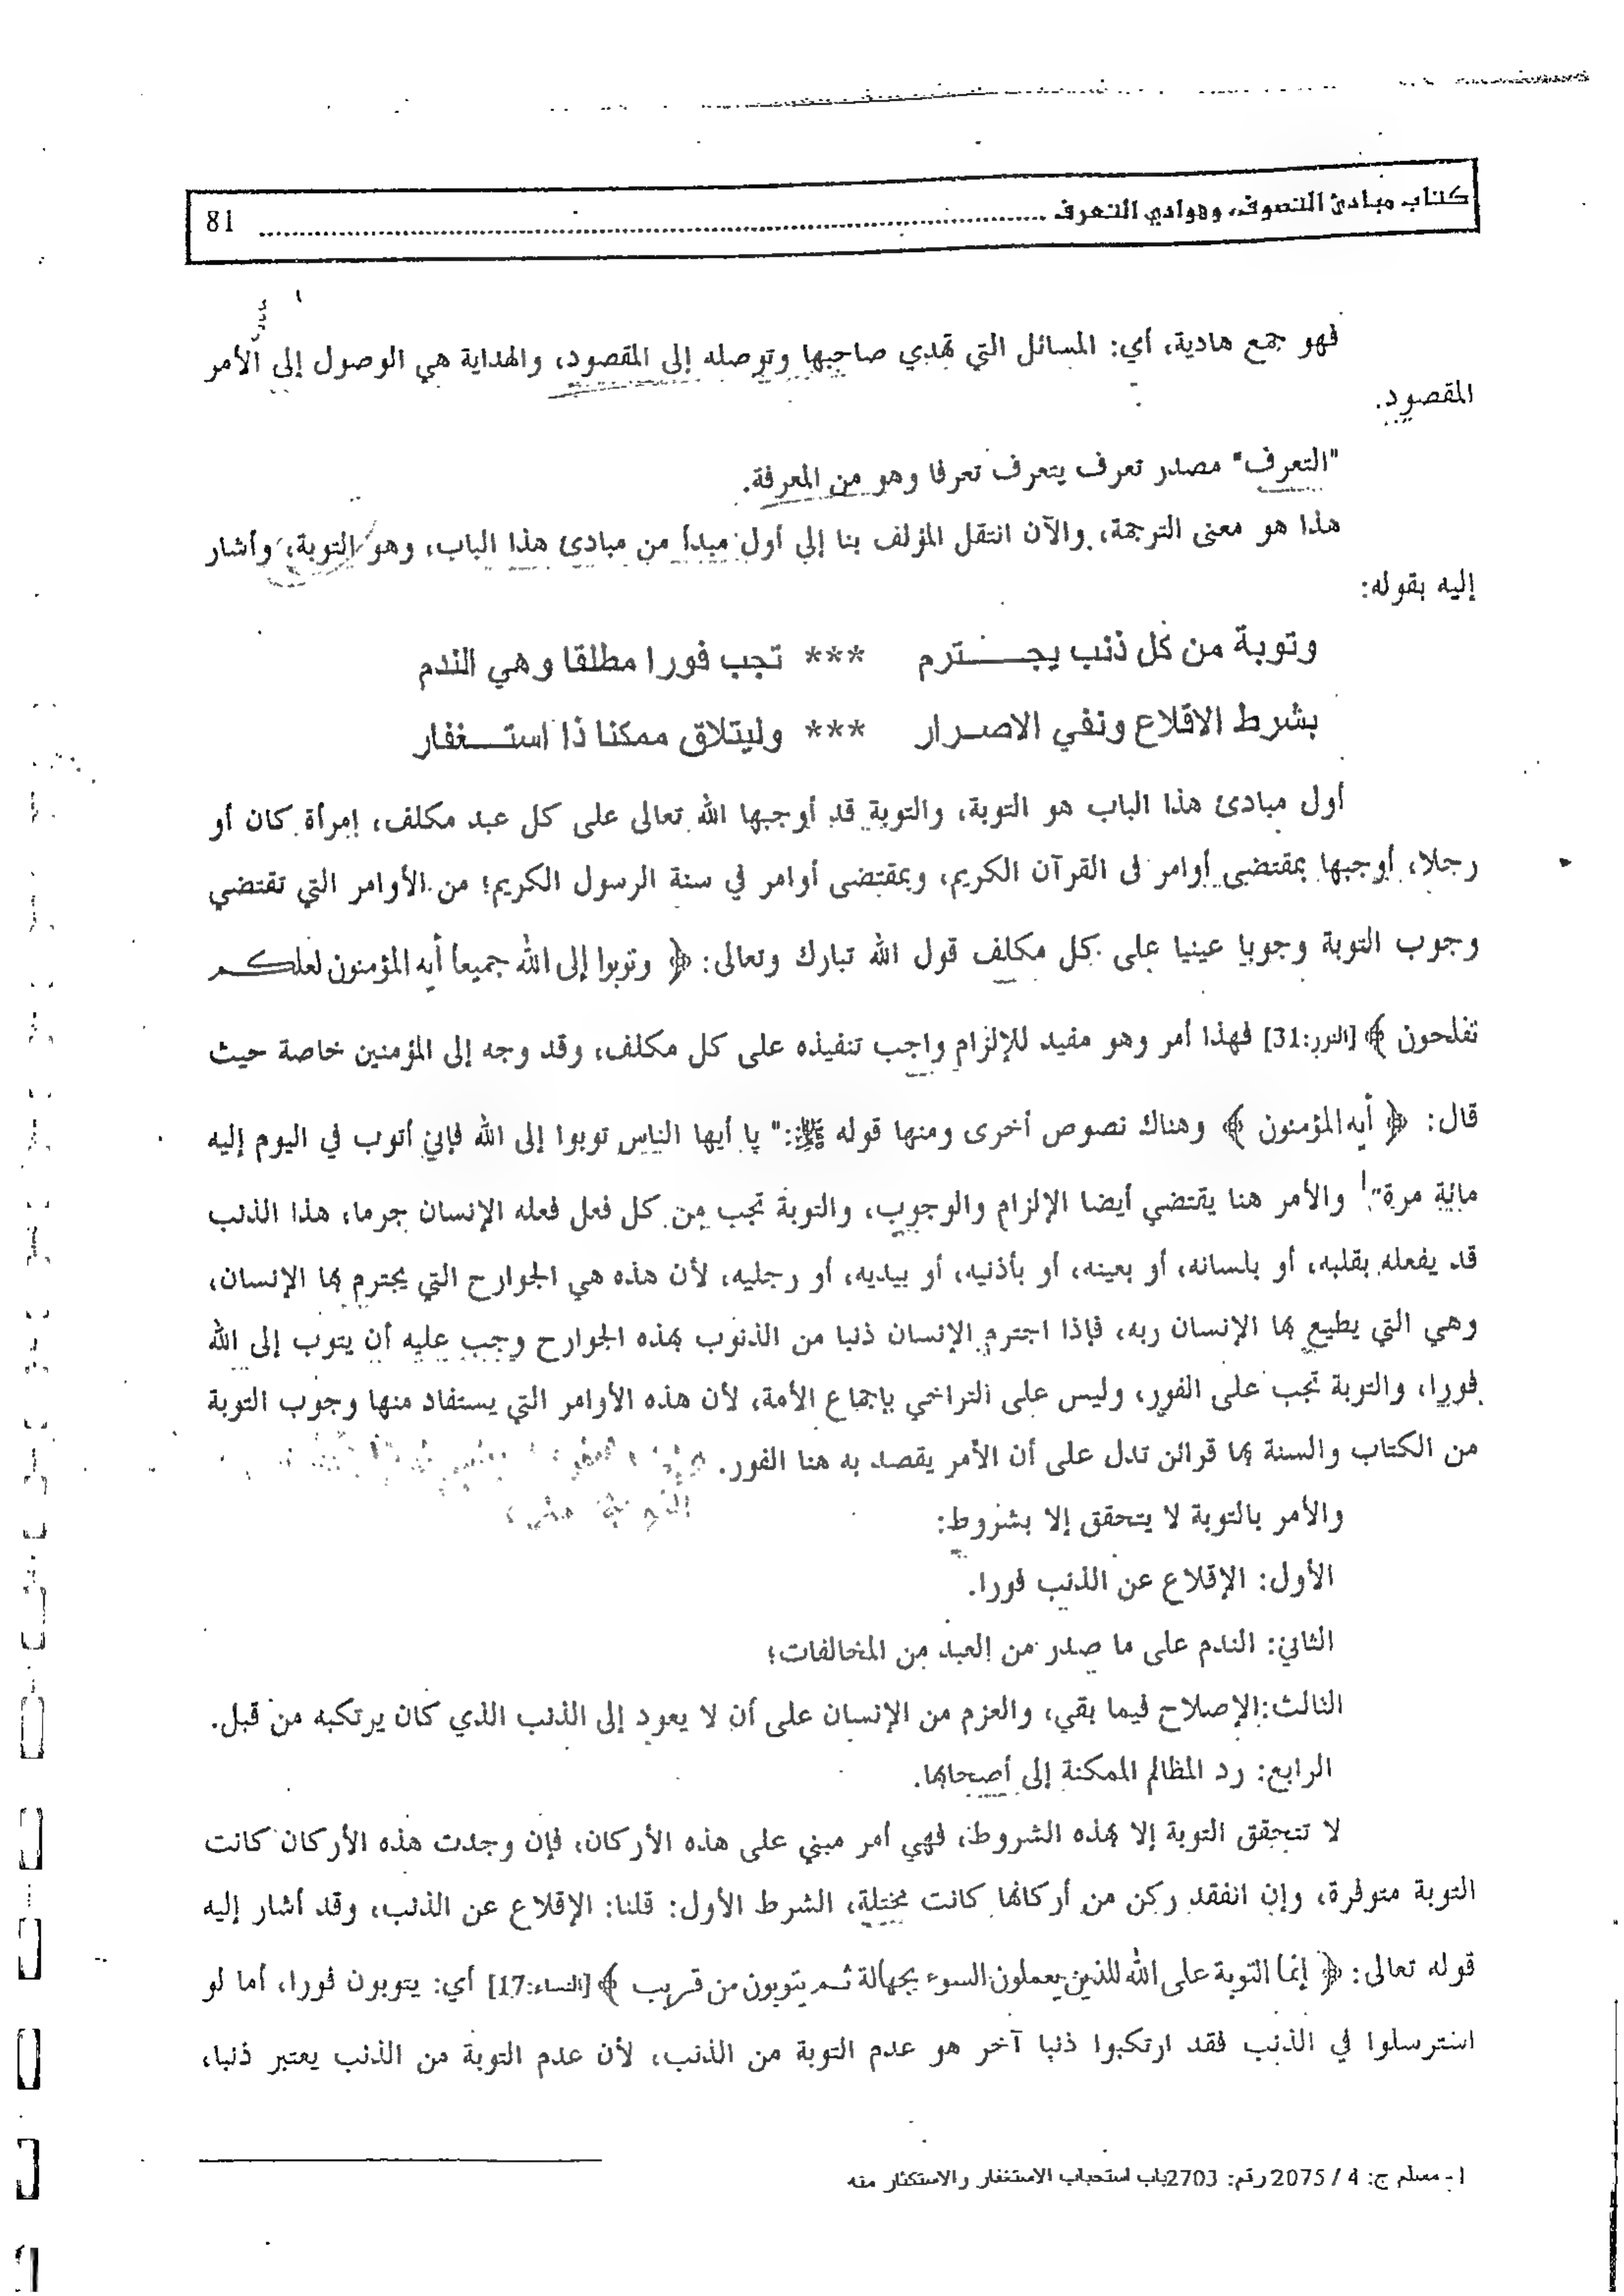 كتاب مبادئ التصوف، وهوادي التعرف ........................ 81
فهو جمع هادية، أي: المسائل التي تهدي صاحبها وتوصله إلى المقصود، والهداية هي الوصول إلى الأمر
المقصود.
"التعرف" مصدر تعرف يتعرف تعرفا وهو من المعرفة.
هذا هو معنى الترجمة، والآن انتقل المؤلف بنا إلى أول مبدأ من مبادئ هذا الباب، وهو التوبة، وأشار
إليه بقوله:
وتوبة من كل ذنب يجـــترم *** تجب فورا مطلقا وهي الندم
بشرط الاقلاع ونفي الاصـرار *** وليتلاق ممكنا ذا استـــغفار
أول مبادئ هذا الباب هو التوبة، والتوبة قد أوجبها الله تعالى على كل عبد مكلف، إمرأة كان أو
رجلا، أوجبها بمقتضى أوامر فى القرآن الكريم، وبمقتضى أوامر في سنة الرسول الكريم؛ من الأوامر التي تقتضي
وجوب التوبة وجوبا عينيا على كل مكلف قول الله تبارك وتعالى: ﴿ وتوبوا إلى الله جميعا أيه المؤمنون لعلكم
تفلحون ﴾ [النور:31] فهذا أمر وهو مفيد للإلزام واجب تنفيذه على كل مكلف، وقد وجه إلى المؤمنين خاصة حيث
قال: ﴿ أيه المؤمنون ﴾ وهناك نصوص أخرى ومنها قوله ﷺ:" يا أيها الناس توبوا إلى الله فإني أتوب في اليوم إليه
مائة مرة"1 والأمر هنا يقتضي أيضا الإلزام والوجوب، والتوبة تجب من كل فعل فعله الإنسان جرما، هذا الذنب
قد يفعله بقلبه، أو بلسانه، أو بعينه، أو بأذنيه، أو بيديه، أو رجليه، لأن هذه هي الجوارح التي يجترم بها الإنسان،
وهي التي يطيع بها الإنسان ربه، فإذا اجترم الإنسان ذنبا من الذنوب بهذه الجوارح وجب عليه أن يتوب إلى الله
فورا، والتوبة تجب على الفور، وليس على التراخي بإجماع الأمة، لأن هذه الأوامر التي يستفاد منها وجوب التوبة
من الكتاب والسنة بها قرائن تدل على أن الأمر يقصد به هنا الفور.
والأمر بالتوبة لا يتحقق إلا بشروط:
الأول: الإقلاع عن الذنب فورا.
الثاني: الندم على ما صدر من العبد من المخالفات؛
الثالث:الإصلاح فيما بقي، والعزم من الإنسان على أن لا يعود إلى الذنب الذي كان يرتكبه من قبل.
الرابع: رد المظالم الممكنة إلى أصحابها.
لا تتحقق التوبة إلا بهذه الشروط، فهي أمر مبني على هذه الأركان، فإن وجدت هذه الأركان كانت
التوبة متوفرة، وإن انفقد ركن من أركانها كانت مختلة، الشرط الأول: قلنا: الإقلاع عن الذنب، وقد أشار إليه
قوله تعالى: ﴿ إنما التوبة على الله للذين يعملون السوء بجهالة ثم يتوبون من قريب ﴾ [النساء:17] أي: يتوبون فورا، أما لو
استرسلوا في الذنب فقد ارتكبوا ذنبا آخر هو عدم التوبة من الذنب، لأن عدم التوبة من الذنب يعتبر ذنبا،
1- مسلم ج: 4 / 2075 رقم: 2703باب استحباب الاستغفار والاستكثار منه